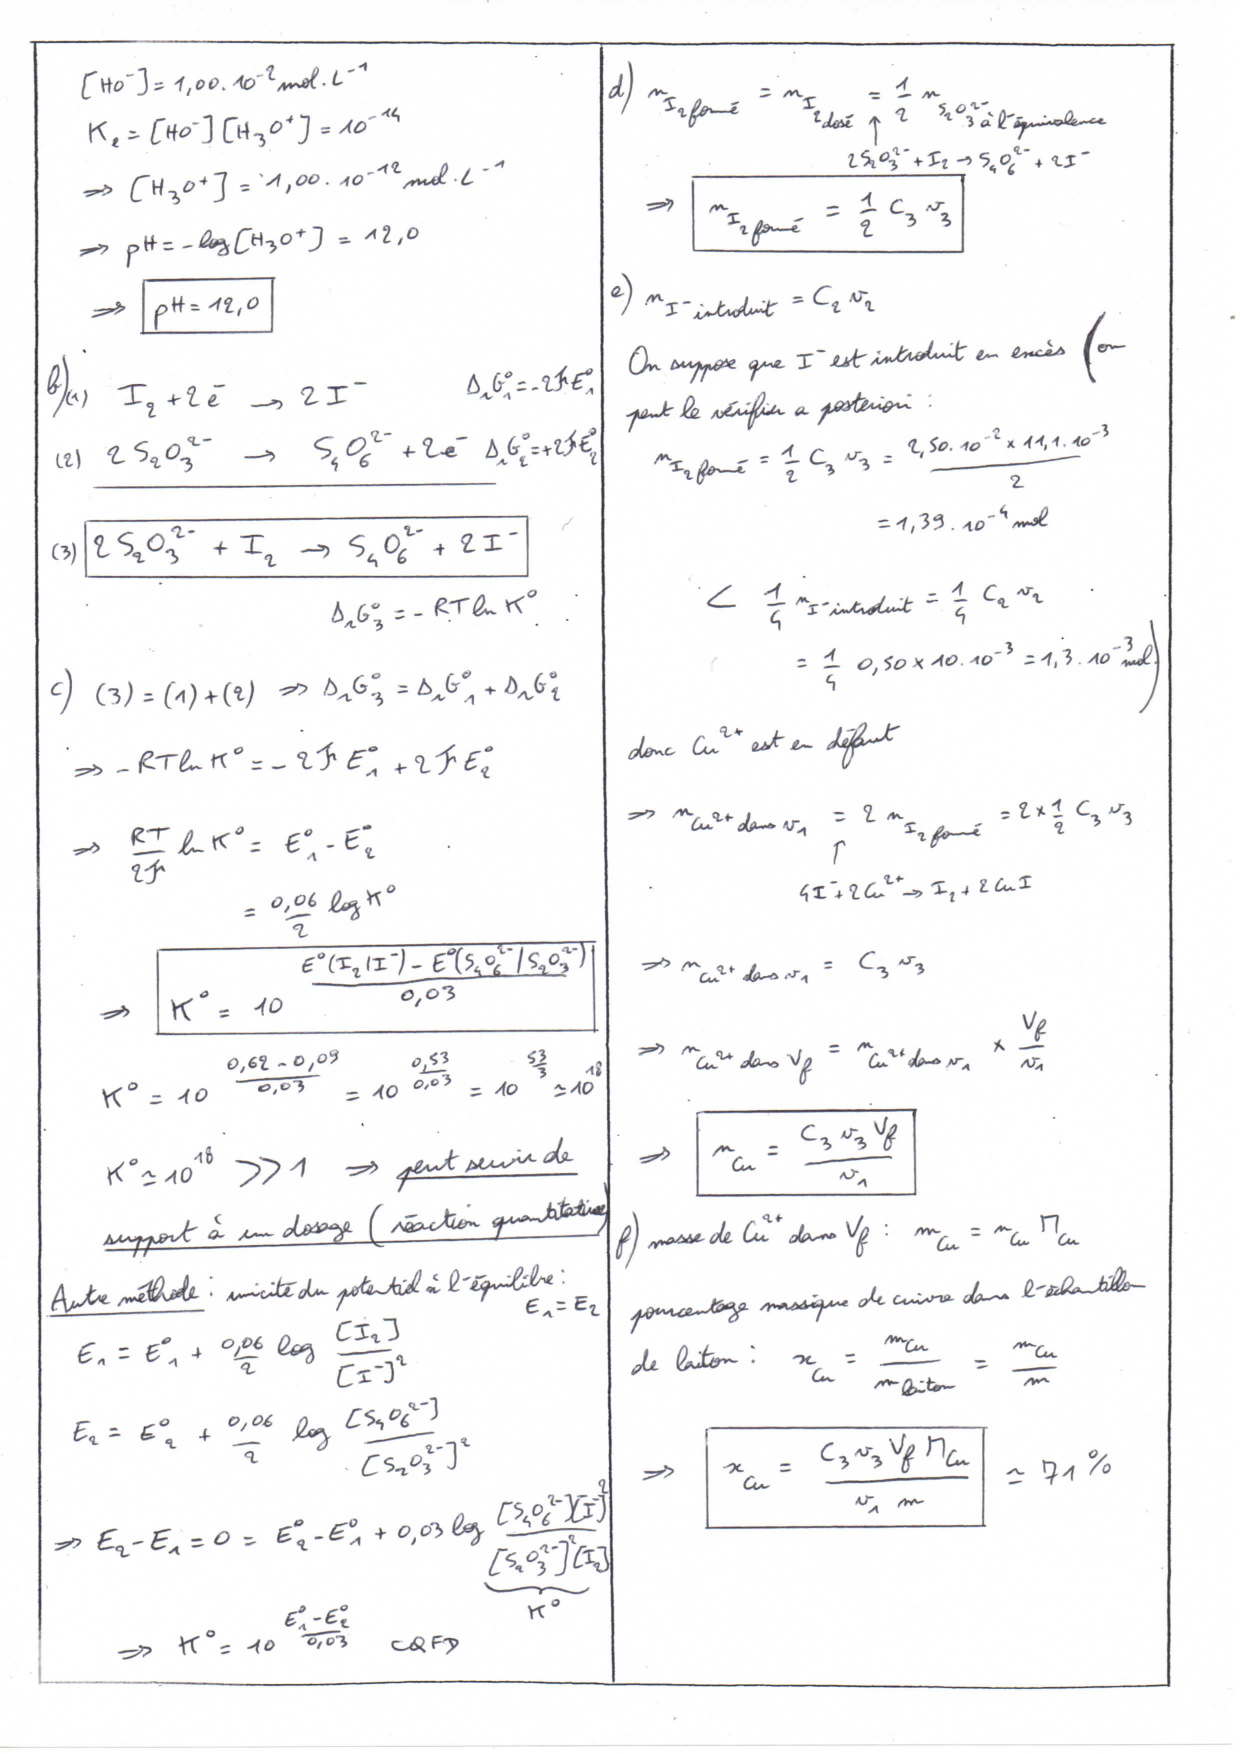 [HO⁻] = 1,00.10⁻² mol.L⁻¹
Kₑ = [HO⁻][H₃O⁺] = 10⁻¹⁴
⇒ [H₃O⁺] = 1,00.10⁻¹² mol.L⁻¹
⇒ pH = -log[H₃O⁺] = 12,0
⇒ pH = 12,0
b)(1) I₂ + 2é → 2I⁻ ΔᵣG₁° = -2ℱE₁°
(2) 2S₂O₃²⁻ → S₄O₆²⁻ + 2e⁻ ΔᵣG₂° = +2ℱE₂°
(3) 2S₂O₃²⁻ + I₂ → S₄O₆²⁻ + 2I⁻
ΔᵣG₃° = -RT ln K°
c) (3) = (1) + (2) ⇒ ΔᵣG₃° = ΔᵣG₁° + ΔᵣG₂°
⇒ -RT ln K° = -2ℱE₁° + 2ℱE₂°
⇒ RT/2ℱ ln K° = E₁° - E₂°
= 0,06/2 log K°
⇒ K° = 10^((E°(I₂/I⁻) - E°(S₄O₆²⁻/S₂O₃²⁻))/0,03)
K° = 10^((0,62-0,09)/0,03) = 10^(0,53/0,03) = 10^(53/3) ≃ 10¹⁸
K° ≃ 10¹⁸ >> 1 ⇒ peut servir de
support à un dosage (réaction quantitative)
Autre méthode : unicité du potentiel à l'équilibre :
E₁ = E₂
E₁ = E₁° + 0,06/2 log [I₂]/[I⁻]²
E₂ = E₂° + 0,06/2 log [S₄O₆²⁻]/[S₂O₃²⁻]²
⇒ E₂ - E₁ = 0 = E₂° - E₁° + 0,03 log [S₄O₆²⁻][I⁻]²/[S₂O₃²⁻]²[I₂]
K°
⇒ K° = 10^((E₁°-E₂°)/0,03) CQFD
d) n I₂ formé = n I₂ dosé = 1/2 n S₂O₃²⁻ à l'équivalence
↑ 2S₂O₃²⁻ + I₂ → S₄O₆²⁻ + 2I⁻
⇒ n I₂ formé = 1/2 C₃ v₃
e) n I⁻ introduit = C₂ v₂
On suppose que I⁻ est introduit en excès (on
peut le vérifier a posteriori :
n I₂ formé = 1/2 C₃ v₃ = 2,50.10⁻² × 11,1.10⁻³/2
= 1,39.10⁻⁴ mol
< 1/4 n I⁻ introduit = 1/4 C₂ v₂
= 1/4 0,50 × 10.10⁻³ = 1,3.10⁻³ mol.)
donc Cu²⁺ est en défaut
⇒ n Cu²⁺ dans v₁ = 2 n I₂ formé = 2 × 1/2 C₃ v₃
↑
4I⁻ + 2Cu²⁺ → I₂ + 2CuI
⇒ n Cu²⁺ dans v₁ = C₃ v₃
⇒ n Cu²⁺ dans V_f = n Cu²⁺ dans v₁ × V_f/v₁
⇒ n Cu = C₃ v₃ V_f/v₁
f) masse de Cu²⁺ dans V_f : m Cu = n Cu M Cu
pourcentage massique de cuivre dans l'échantillon
de laiton : x Cu = m Cu/m laiton = m Cu/m
⇒ x Cu = C₃ v₃ V_f M Cu/v₁ m ≃ 71 %